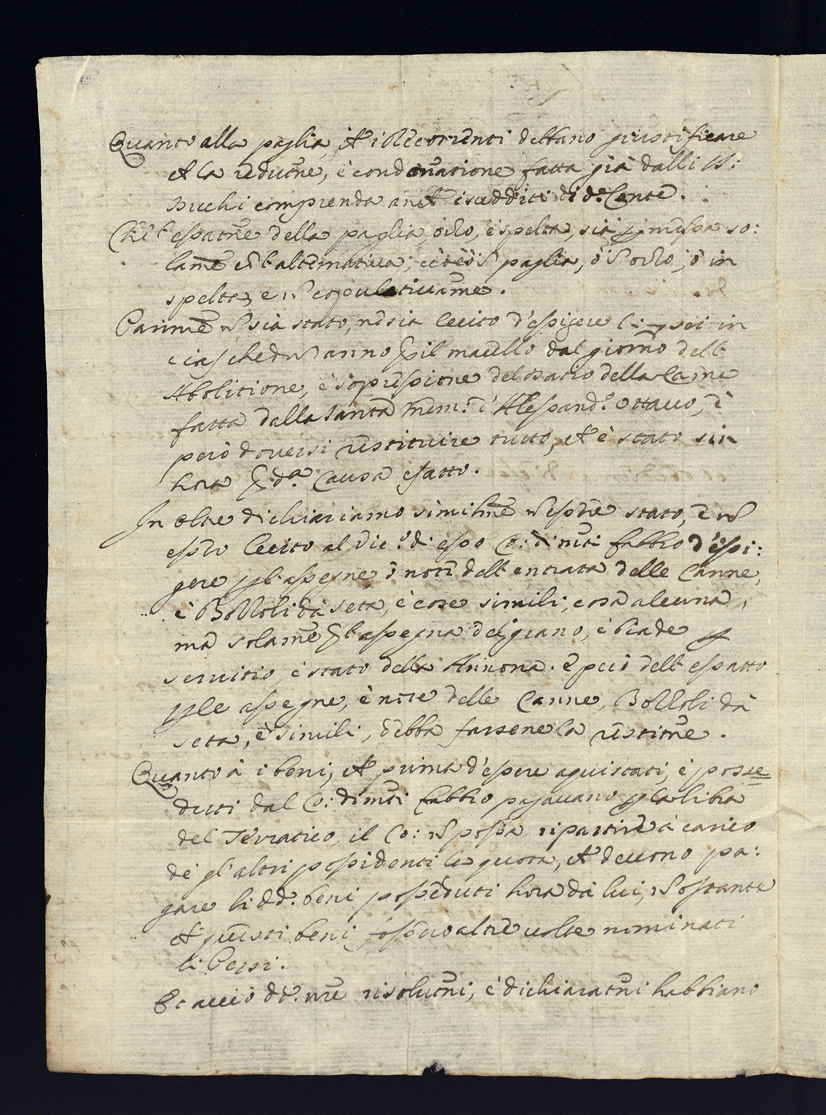 Quanto alla paglia, ch'i Recorrenti debbano giustificare
ch la redutne, è condonatione fatta già dalli SS:
Bichi comprenda anch i sudditi di do Conte.
Che l'esatne della paglia, orzo, è spelta, sia messa so:
lamte all'alternativa, cioè ò paglia, ò orzo, ò in
spelta, e n copulativame.
Parimte n sia stato, nè sia lecito d'esigere li scudi in
ciaschedun anno il macello dal giorno dell
Abolitione, è sopressione del Datio della Carne
fatta dalla Santa mem: d'Alessandro Ottavo, è
però doversi restituire tutto, ch è stato sin
hora da Causa esatto.
In oltre dichiariamo similmte n esser stato, è n
esser lecito al Vico di esso Co: di nuti fabbio d'esi:
gere l'assegne ò note dell entrata delle Canne,
è Bozzoli da seta, è cose simili, cosa alcuna,
mà solamte l'assegna del grano, è biade
servitio, è stato della Annona. E però dell esatto
le assegne, è note delle Canne, Bozzoli da
seta, è simili, debba farsene la restitne.
Quanto à i beni, ch prima d'essere aquistati, è posse=
duti dal Co: di nuti fabbio pagavano la libra
del Terratico, il Co: n possa ripartire à carico
de gl'altri possidenti la quota, ch devono pa:
gare li dd. beni posseduti hora da lui, n ostante
ch questi beni fossero altre volte nominati
li Persi.
Et acciò de. nre risolutni, è dichiaratni habbiano